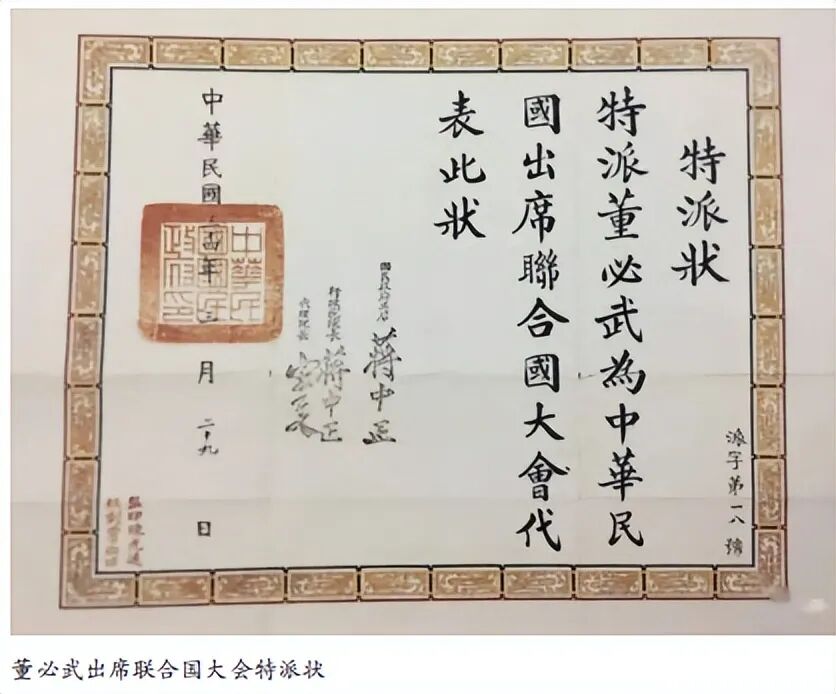 特派状
特派董必武為中華民
國出席聯合國大會代
表此狀
國民政府主席 蔣中正
行政院院長 蔣中正
代理院長 宋子文
中華民國三十四年三月二十九日
中華民國國民政府印
派字第一八號
董必武出席联合国大会特派状